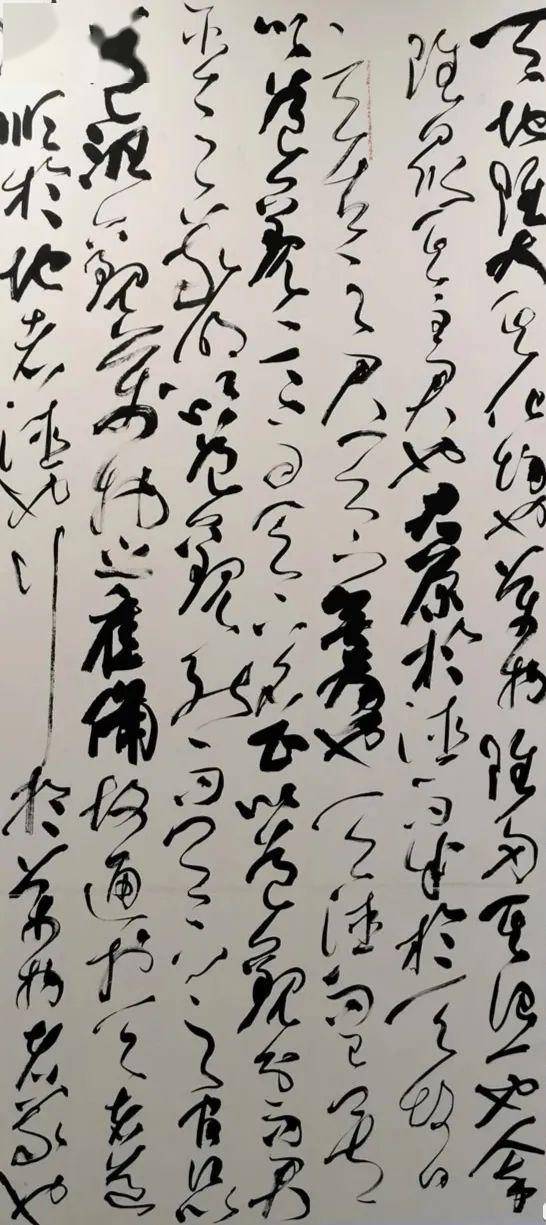 天地雖大其化均也萬物雖多其治一也人卒
雖眾其主君也君原於德而成於天故曰
玄古之君天下無為也天德而已矣
以道觀言而天下名正以道觀分而君
臣之義明以道觀能而天下之官治以
道汎觀而萬物之應備故通於天者道
順於地者德也行於萬物者義也